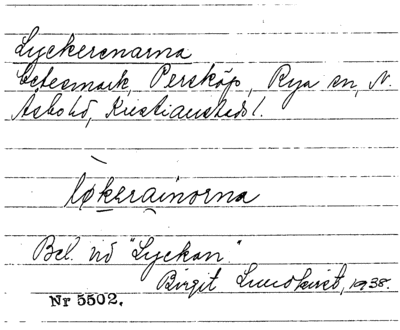 Lyckerenarna
betesmark, Perskôp, Rya sn, N.
Åsbo hd, Kristianstads l.
lø̀kerainorna
Bel. vid "Lyckan".
Birgit Lundkvist, 1938.
Nr 5502.